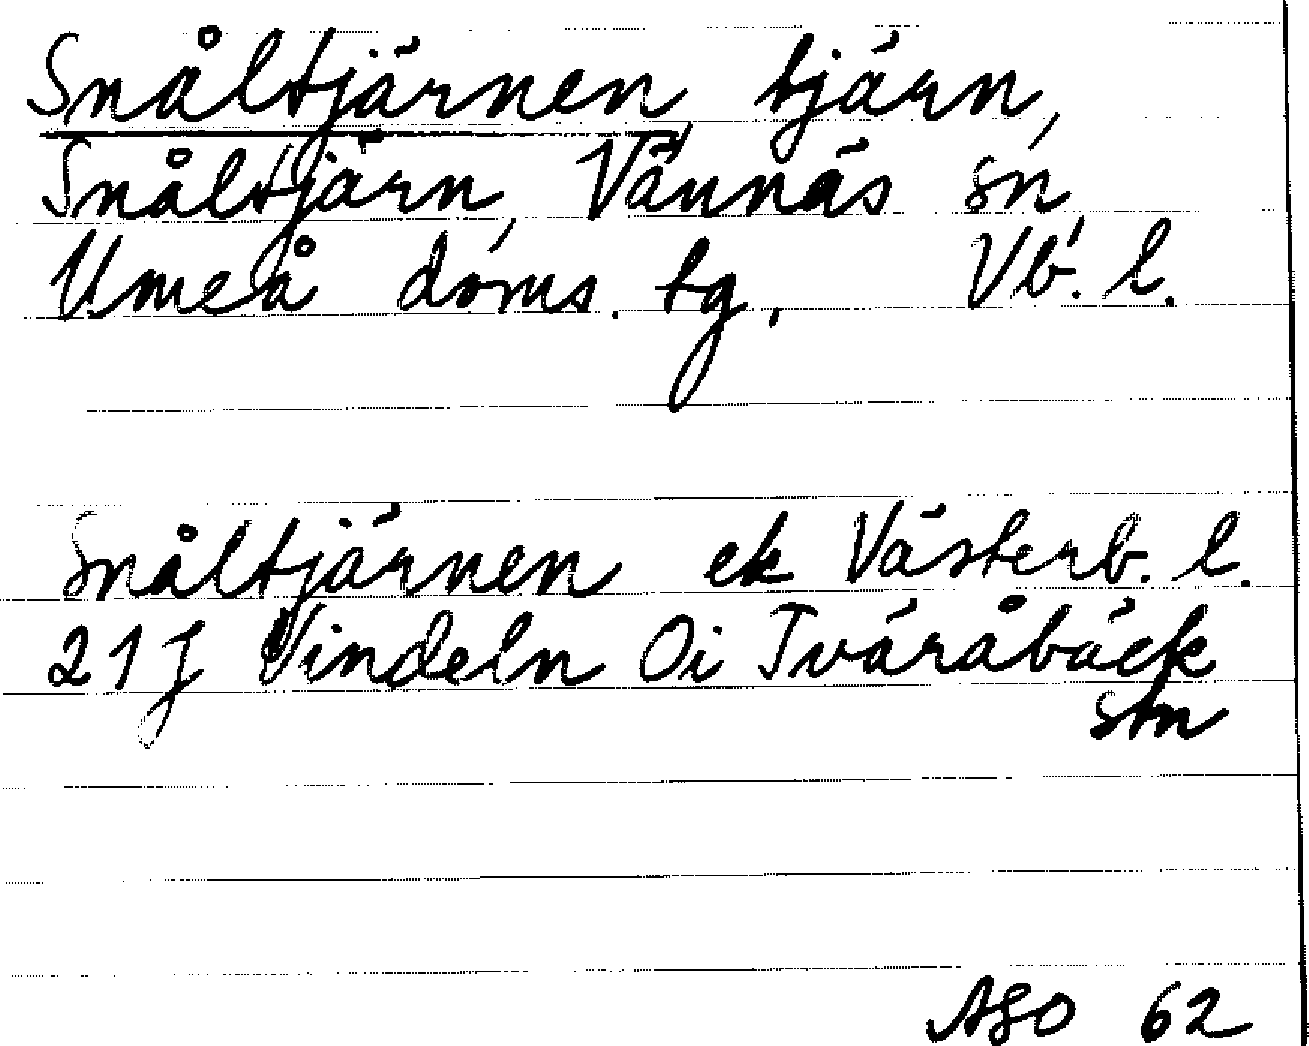 Snåltjärnen, tjärn,
Snåltjärn, Vännäs sn,
Umeå doms. tg, Vb. l.
Snåltjärnen ek Västerb. l.
21J Vindeln Oi Tväråbäck
stn
ASO 62